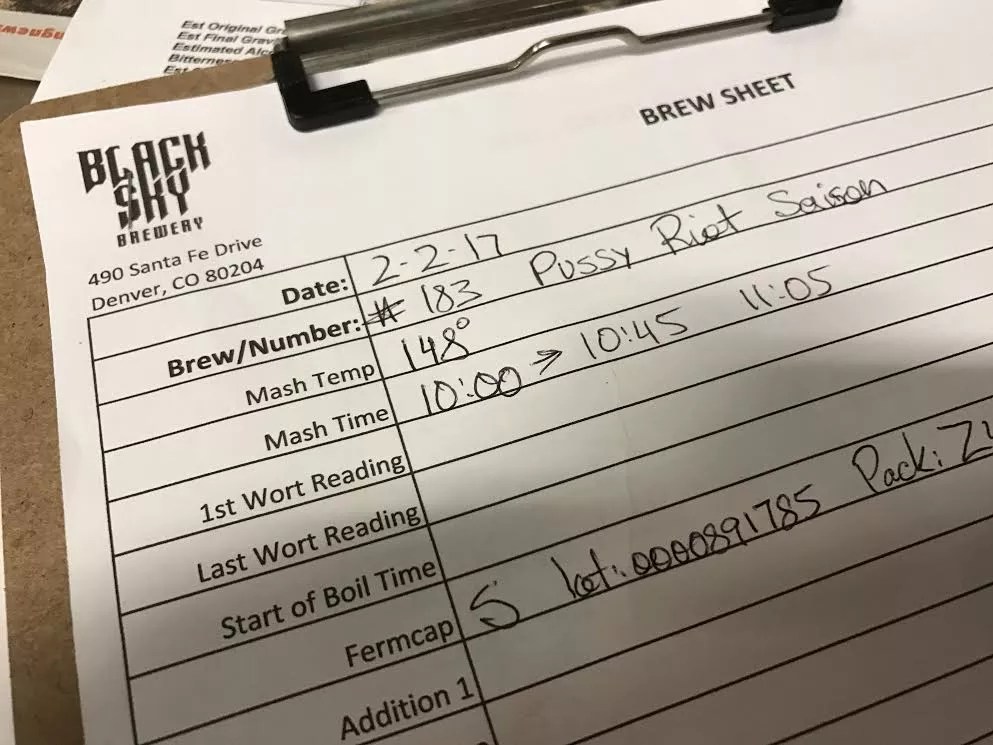 Est Original
Est Final
Estimated
Est
BREW SHEET
BLACK
SKY
BREWERY
490 Santa Fe Drive
Denver, CO 80204
Date: 2-2-17
Brew/Number: # 183 Pussy Riot Saison
Mash Temp 148°
Mash Time 10:00 > 10:45 11:05
1st Wort Reading
Last Wort Reading
Start of Boil Time
Fermcap 5 lot: 0000891785 Pack:
Addition 1